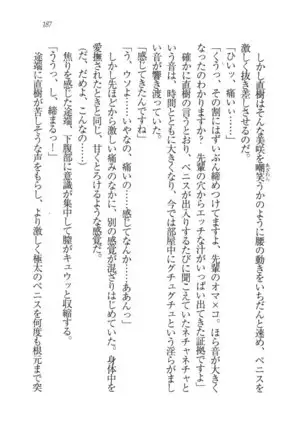 187
しかし直樹はそんな美咲を嘲笑うかのように腰の動きをいちだんと速め、ペニスを
あざわら
激しく抜き差しさせるのだ。
「ひいッ、痛い……」
「くうっ、その割にはずいぶん締めつけてきますよ、先輩のオマ×コ。ほら音が大きく
なったのわかりますか？　先輩の穴からエッチな汁がいっぱい出てきた証拠ですよ」
確かに直樹の言うとおり、ペニスが出入りするたびに聞こえていたネチャネチャと
いう音は、時間とともに大きくなり、今では部屋中にグチュグチュという淫らがまし
い音が響き渡っていた。
「感じてきたんですね」
「う、ウソよ……いやなの、痛いの……感じてなんか……ああんっ」
しかし先ほどから激しい痛みのなかに、別の感覚が混ざりはじめていた。身体中を
愛撫されたときと同じ、甘くとろけるような感覚だ。
「だ、だめよ、こんなの……」
焦りを感じた途端、下腹部に意識が集中して膣がキュウッと収縮する。
「ううっ、し、締まるっ！」
途端に直樹が苦しそうな声をもらし、より激しく極太のペニスを何度も根元まで突